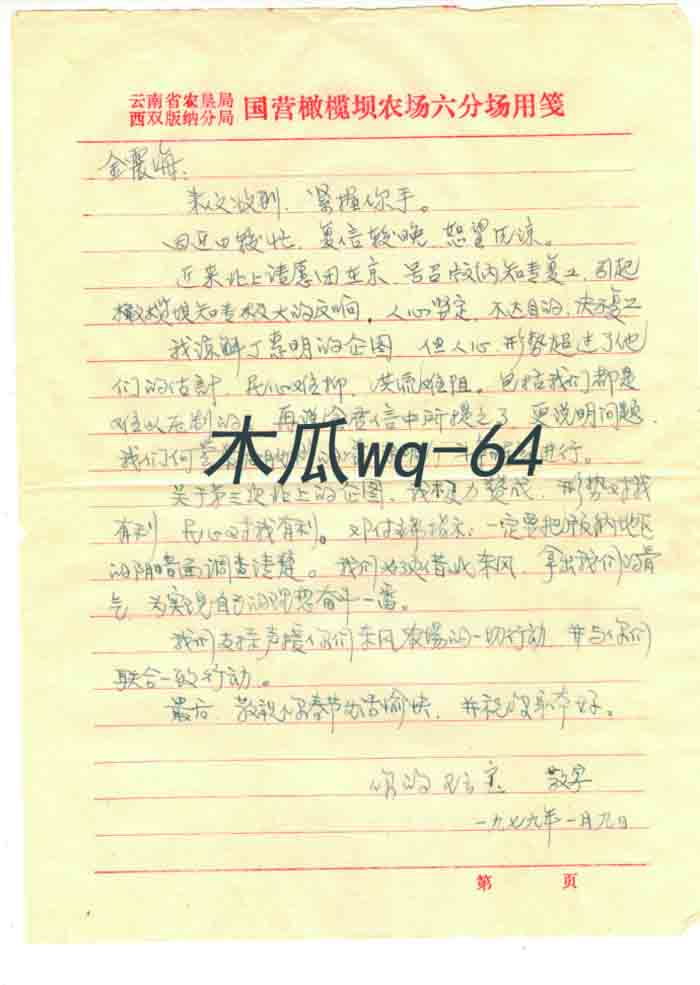 云南省农垦局
西双版纳分局 国营橄榄坝农场六分场用笺
金震海：
来文收到，紧握你手。
因近日较忙，复信较晚，恕望见谅。
近来北上请愿团在京，号召版纳知青复工，引起
橄榄坝知青极大的反响，人心坚定，不达目的，决不复工
我谅解丁惠明的企图，但人心，形势超过了他
们的估计，民心难抑，洪流难阻。包括我们都是
难以压制的，再 信中所提之了，更说明问题，
我们何 进行。
木瓜wq-64
关于第三次北上的企图，我极力赞成，形势对我
有利，民心对我有利。邓付主席指示：一定要把版纳地区
的阴暗面调查清楚。我们 借此东风，拿出我们的骨
气，为实现自己的理想奋斗一番。
我们支持声援你们东风农场的一切行动，并与你们
联合一致行动。
最后，敬祝你春节生活愉快，并祝
你的 敬字
一九七九年一月九日
第 页